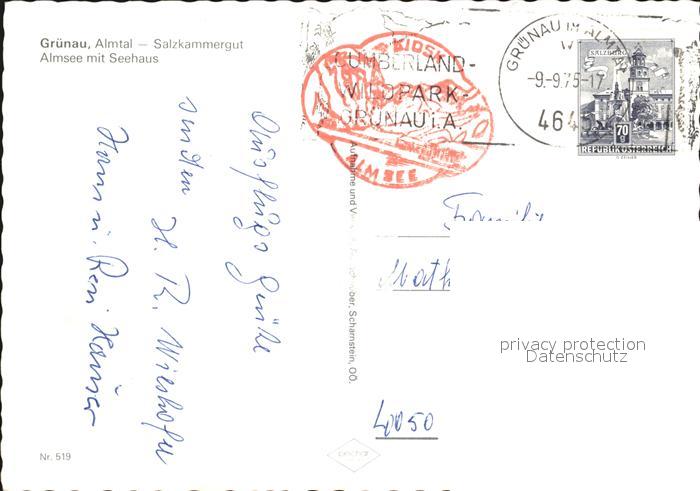 Grünau, Almtal — Salzkammergut
Almsee mit Seehaus
KIOSK
ALMSEE
CUMBERLAND-
WILDPARK-
GRÜNAU i. A.
GRÜNAU IM ALMTAL
-9.-9.75-17
464
SALZBURG
70
g
REPUBLIK ÖSTERREICH
Ausflugs Grüße
senden
Hans u. Resi
Aufnahme und
Scharnstein, OÖ.
Familie
Math
4050
privacy protection
Datenschutz
Nr. 519